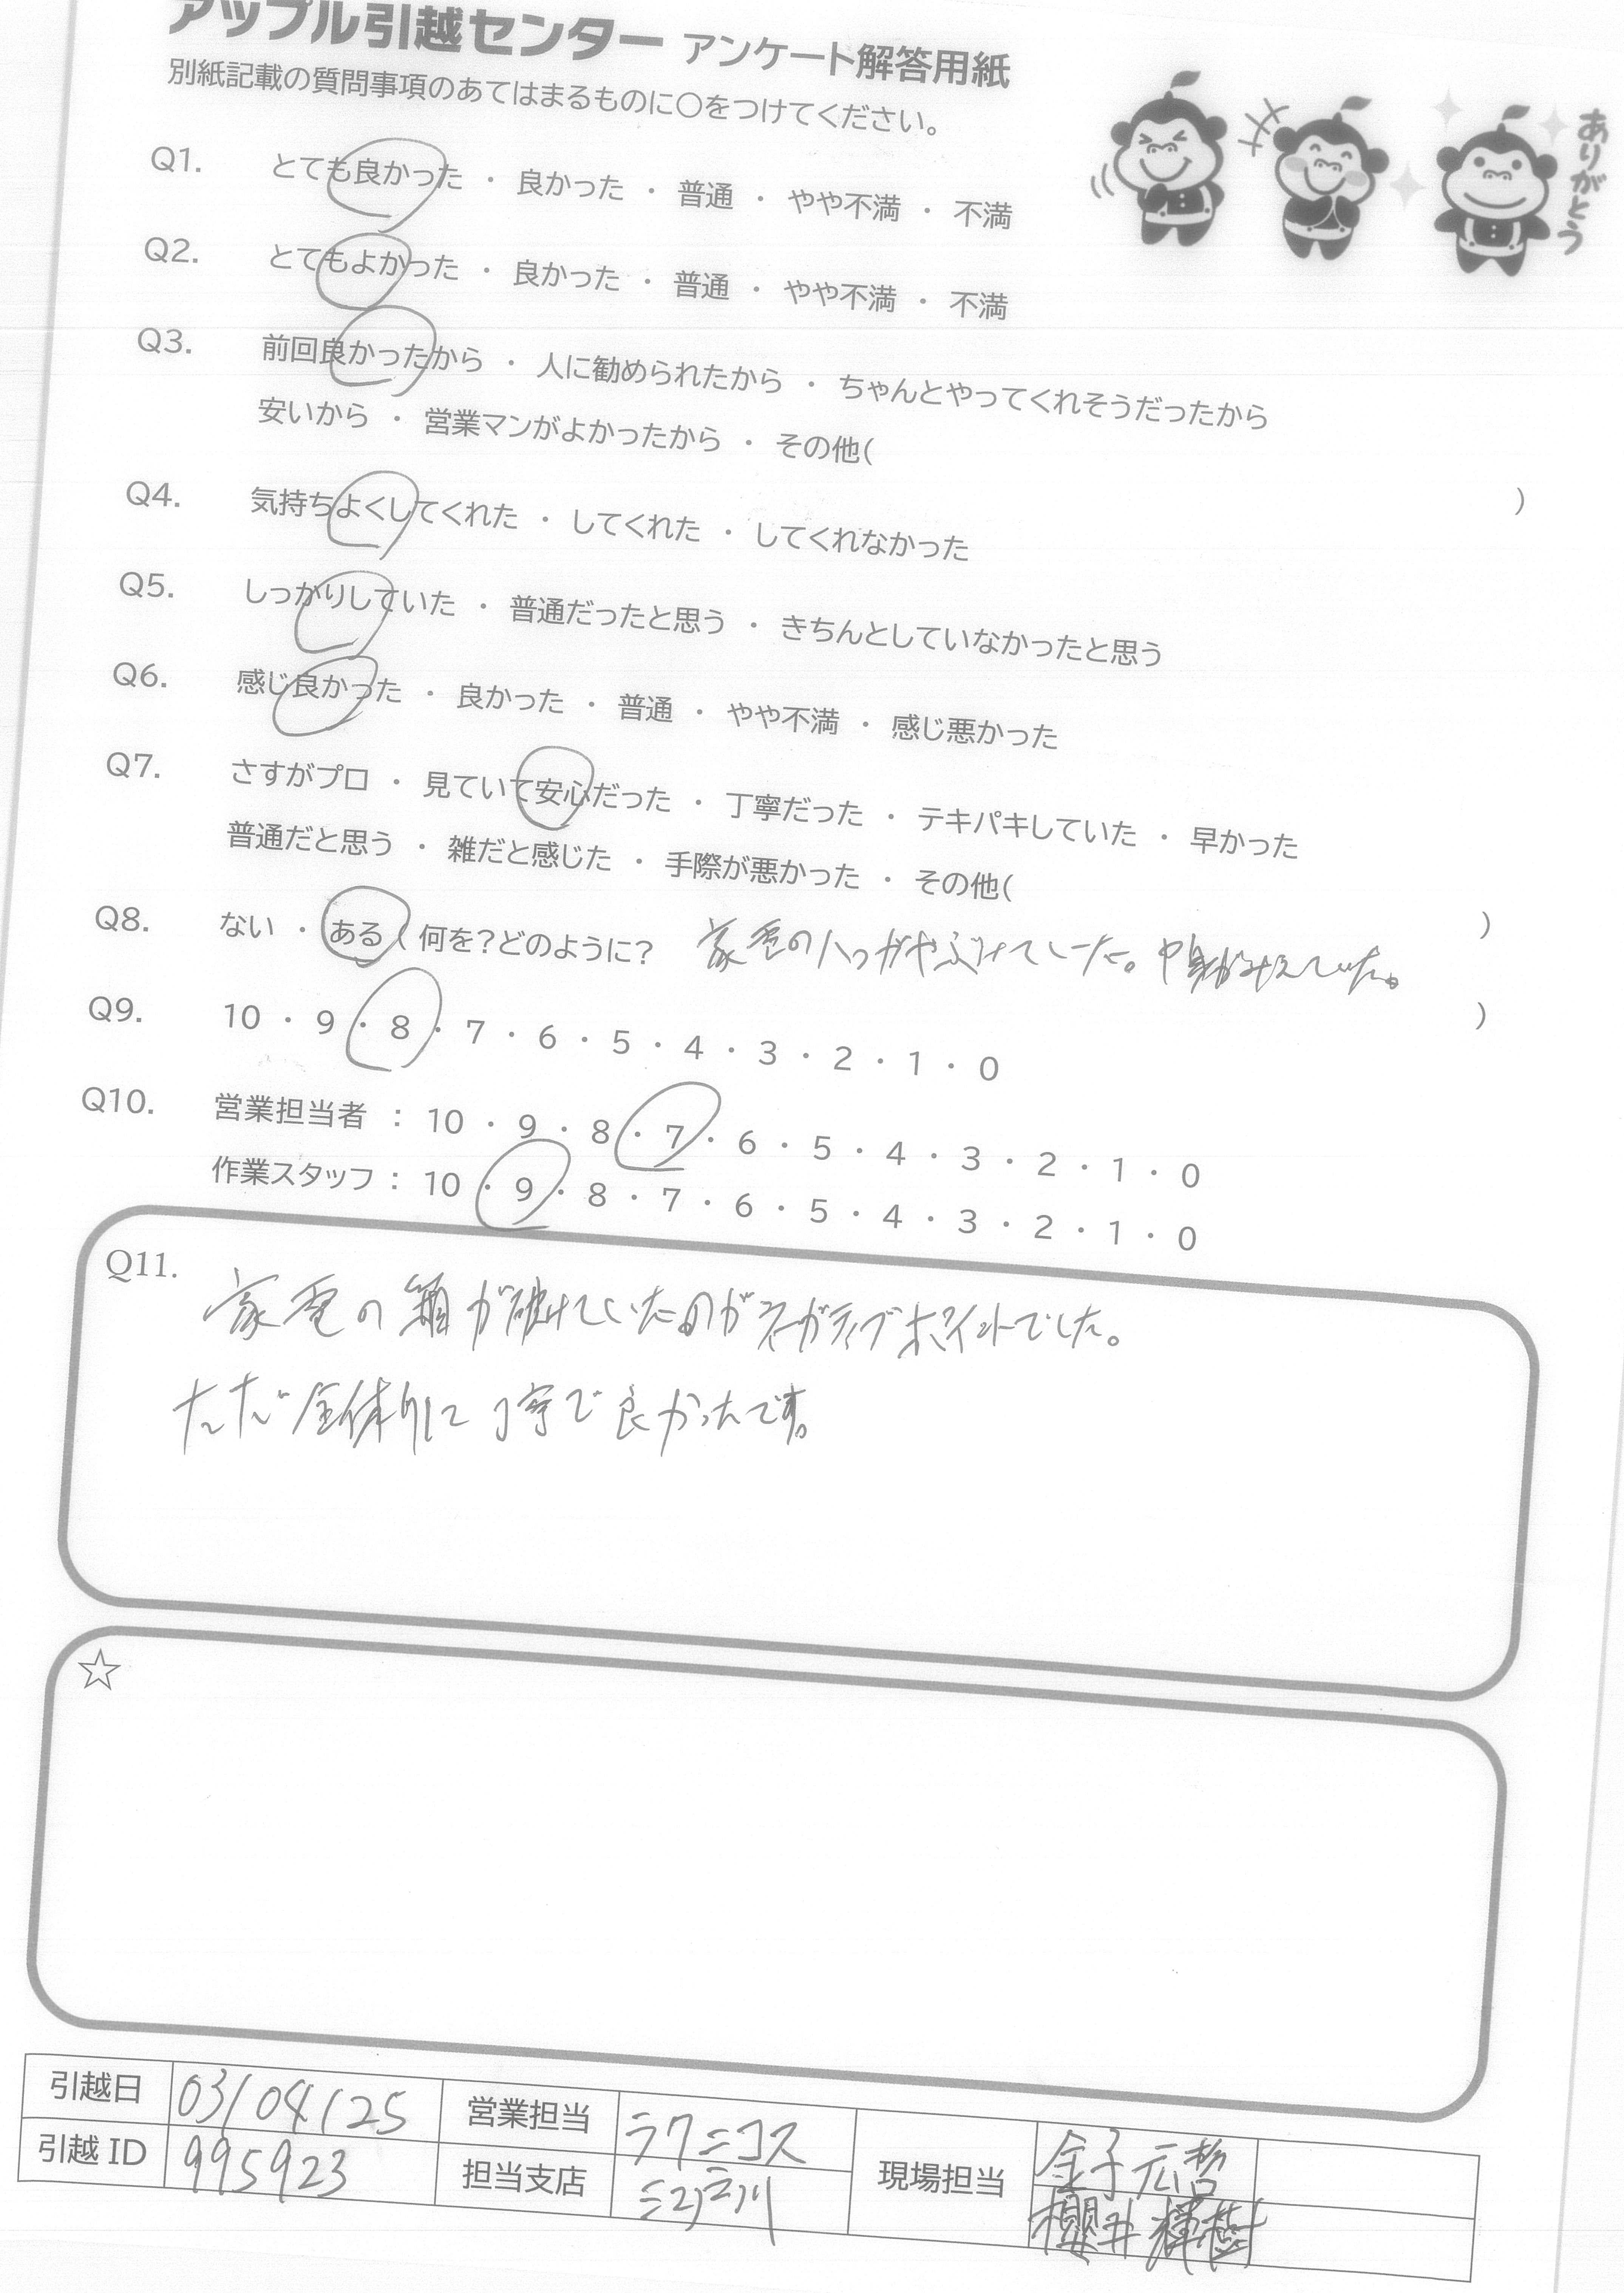 アップル引越センター アンケート解答用紙
別紙記載の質問事項のあてはまるものに〇をつけてください。
ありがとう
Q1. とても良かった ・ 良かった ・ 普通 ・ やや不満 ・ 不満
Q2. とてもよかった ・ 良かった ・ 普通 ・ やや不満 ・ 不満
Q3. 前回良かったから ・ 人に勧められたから ・ ちゃんとやってくれそうだったから
安いから ・ 営業マンがよかったから ・ その他( )
Q4. 気持ちよくしてくれた ・ してくれた ・ してくれなかった
Q5. しっかりしていた ・ 普通だったと思う ・ きちんとしていなかったと思う
Q6. 感じ良かった ・ 良かった ・ 普通 ・ やや不満 ・ 感じ悪かった
Q7. さすがプロ ・ 見ていて安心だった ・ 丁寧だった ・ テキパキしていた ・ 早かった
普通だと思う ・ 雑だと感じた ・ 手際が悪かった ・ その他( )
Q8. ない ・ ある ( 何を?どのように? 家電のハコがやぶけていた。中身が見えていた。 )
Q9. 10 ・ 9 ・ 8 ・ 7 ・ 6 ・ 5 ・ 4 ・ 3 ・ 2 ・ 1 ・ 0
Q10. 営業担当者 : 10 ・ 9 ・ 8 ・ 7 ・ 6 ・ 5 ・ 4 ・ 3 ・ 2 ・ 1 ・ 0
作業スタッフ : 10 ・ 9 ・ 8 ・ 7 ・ 6 ・ 5 ・ 4 ・ 3 ・ 2 ・ 1 ・ 0
Q11. 家電の箱が破けていたのがネガティブポイントでした。
ただ全体的に丁寧で良かったです。
☆
引越日 03/04/25 営業担当 ラクニコス 現場担当 金子元哲
引越ID 995923 担当支店 江戸川 櫻井輝樹